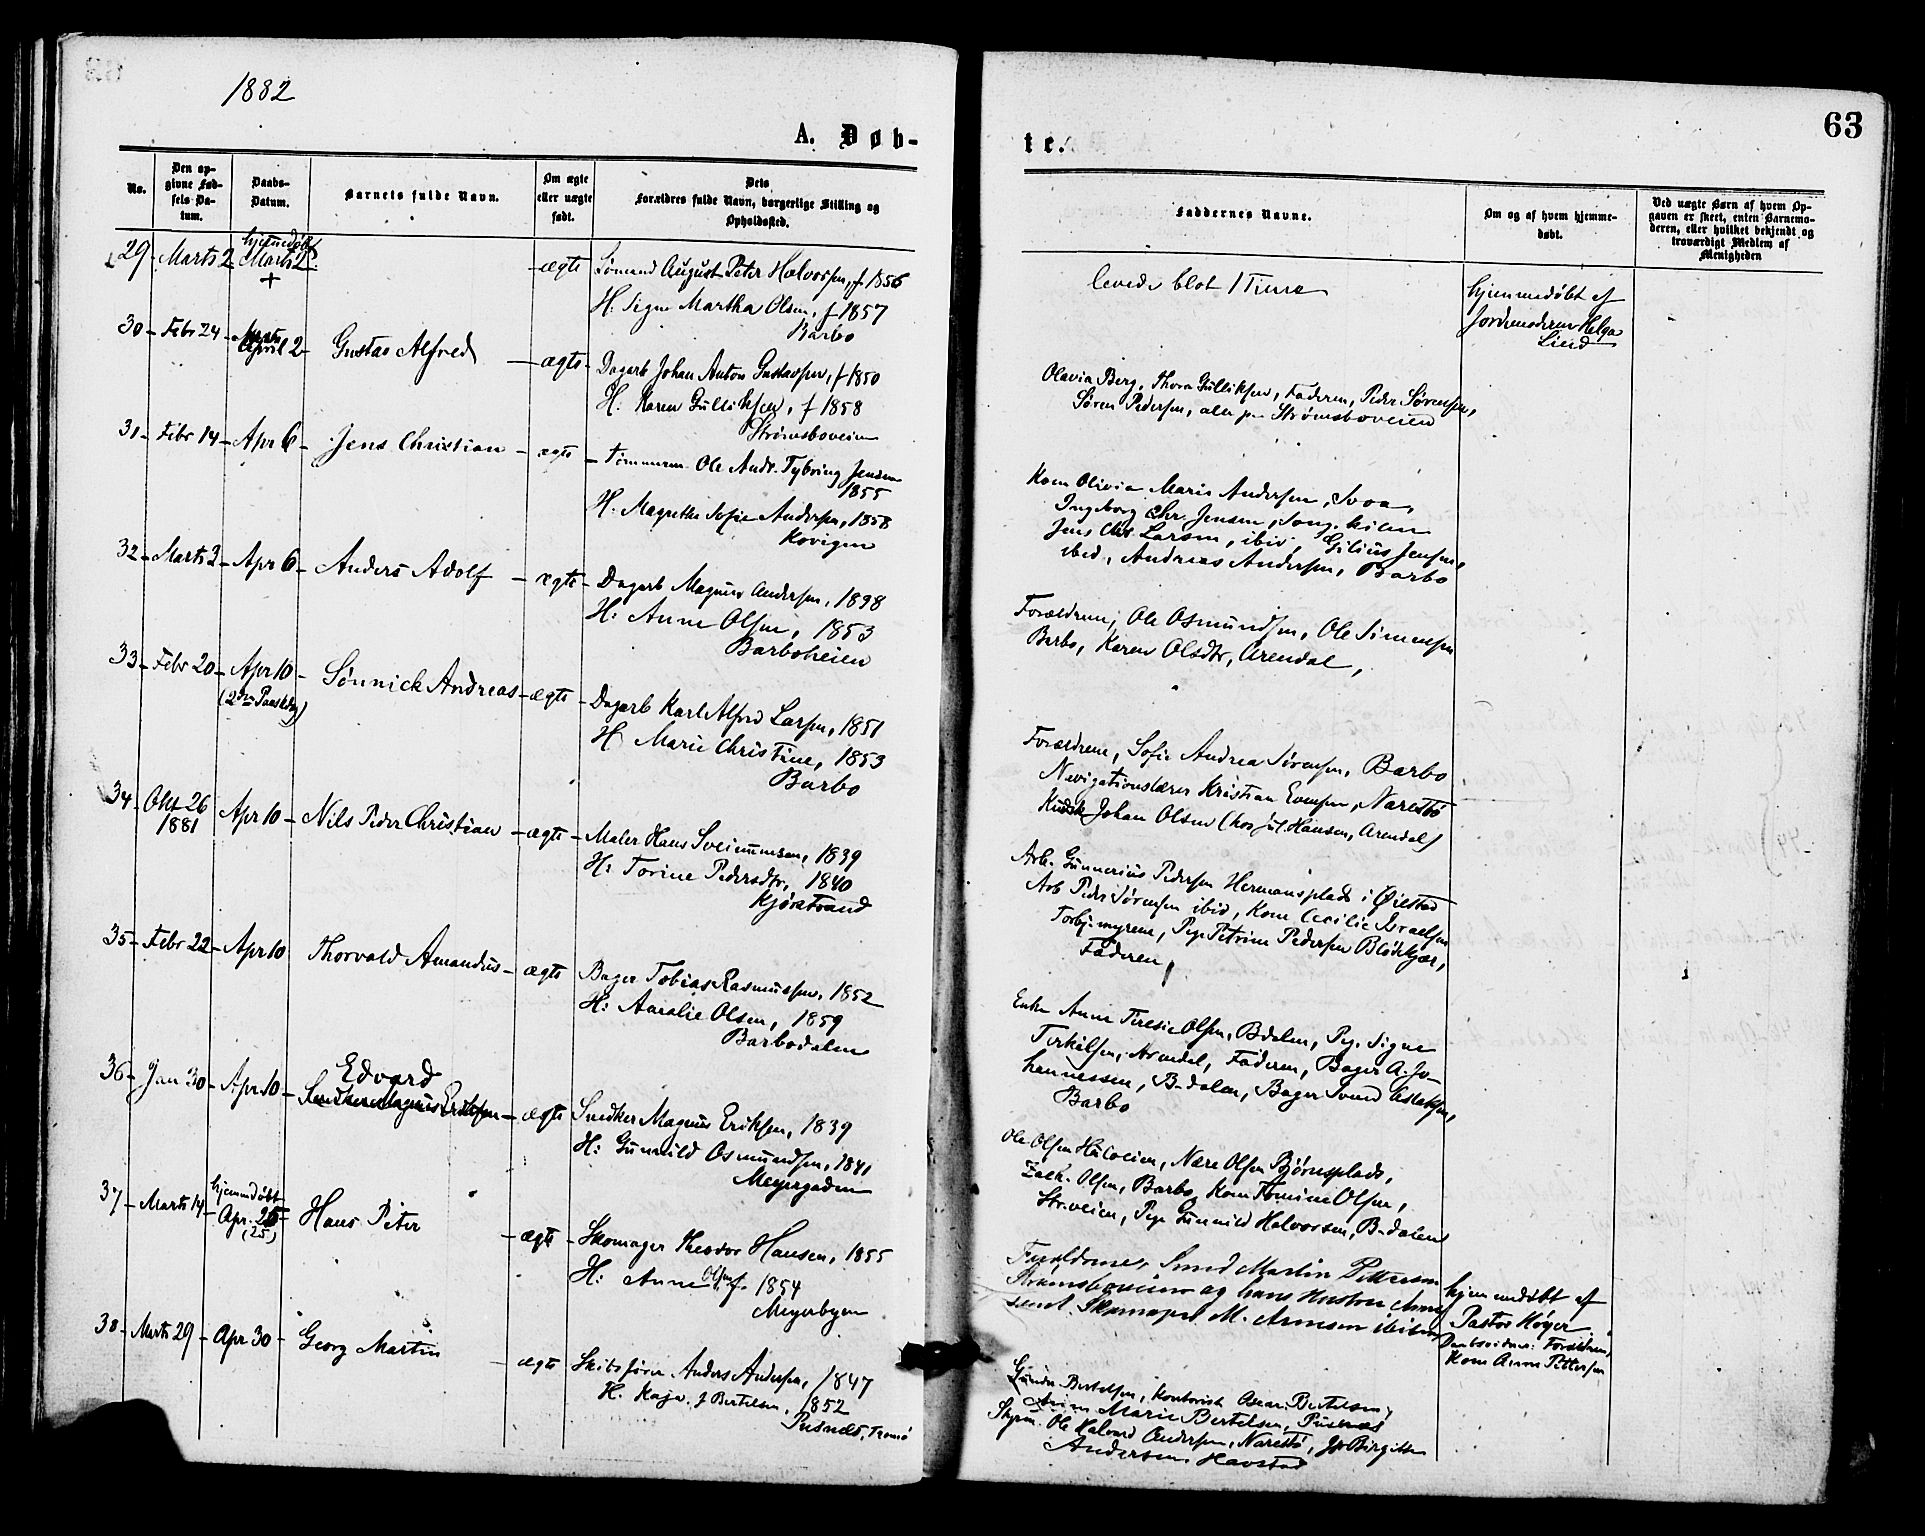 1882
A. Døb-
No.
Den op-
givne Fød-
sels Da-
tum.
Daabs-
Datum.
Barnets fulde Navn.
Om ægte
eller uægte
født.
Dets
Forældres fulde Navn, borgerlige Stilling og
Opholdssted.
29 - Marts 2 hjemmedøbt Marts 2 - ægte Sømand August Peter Halvorsen, f 1856
+
H. Signe Martha Olsen, f 1857
Barbo
30 - Febr 24 - April 2 - Gustav Alfred - ægte - Dagarb Johan Anton Gustavsen, f 1850
H: Karen Gulliksen, f 1858
Strømsboveien
31 - Febr 14 - Apr 6 - Jens Christian - ægte - Tømmerm. Ole Andr. Tybring Jensen
1855
H. Magrethe Sofie Andersen, 1858
Kovigen
32 - Marts 3 - Apr 6 - Anders Adolf - ægte - Dagarb Magnus Andersen, 1898
H: Anne Olsen, 1853
Barboheien
33 - Febr 20 - Apr 10 - Sønnick Andreas - ægte - Dagarb Karl Alfred Larsen, 1851
(2den Paaskedag)
H Marie Christine, 1853
Barbo
34 - Okt 26 1881 Apr 10 - Nils Peder Christian - ægte - Maler Hans Sveinumsen, 1839
H: Torine Pedersdtr, 1840
Kjørstrand
35 - Febr 22 - Apr 10 Thorvald Amandus - ægte Bager Tobias Rasmussen, 1852
H: Amalie Olsen, 1859
Barbodalen
36 - Jan 30 - Apr 10 - Edvard
Snedker Magnus Eriksen - ægte Snedker Magnus Eriksen, 1839
H: Gunnild Osmundsen, 1841
Meyergaden
37 - Marts 14 - hjemmedøbt Apr. 25 (25) Hans Peter - ægte - Skomager Theodor Hansen, 1855
H: Anne Olsen f. 1854
Meyerbyen
38 - Marts 29 - Apr 30 - Georg Martin - ægte Skibsfører Anders Andersen, 1847
H. Kaja. f Bertelsen, 1852
Pusnæs, Tromø
63
te.
Faddernes Navne.
Om og af hvem hjemme-
døbt.
Ved uægte Børn af hvem Op-
gaven er skeet, enten Barnemo-
deren, eller hvilket bekjendt og
troværdigt Medlem af
Menigheden
levede blot 1 Time
hjemmedøbt af
Jordemoderen Helga
Lind
Olavia Berg, Thora Gulliksen, Faderen, Peder Sørensen,
Søren Pedersen, alle paa Strømsboveien
Kone Olivia Marie Andersen, Svoa,
Ingeborg Chr. Jensen, Songekilen
Jens Chr. Larsen, ibid, Gilius Jensen,
ibid, Andreas Andersen, Barbo
Forældrene, Ole Osmundsen, Ole Simensen
Barbo, Karen Olsdtr, Arendal,
Forældrene, Sofie Andrea Sørensen, Barbo
Navigationslærer Kristian Evensen, Narestø
Kudsk Johan Olsen (hos Jul. Hansen, Arendal)
Arb. Gunnerius Pedersen Hermansplads i Øiestad
Arb Peder Sørensen ibid, Kone Cecilie Israelsen
Torbj.myrene, Pige Petrine Pedersen Blødekjær,
Faderen,
Enke Anne Teresie Olsen, Bdalen, Pige Signe
Terkilsen, Arendal, Faderen, Bager A. Jo-
hannessen, B-dalen, Bager Svend Aslaksen,
Barbo
Ole Olsen, Nære Olsen Bjørnsplads,
Zach. Olsen, Barbo, Kone Tomine Olsen,
Str.veien, Pige Gunnild Halvorsen, B-dalen
Forældrene, Smed Martin Pettersen
Strømsboveien og hans Hustru Anne
samt Skomager M. Arnesen ibidem
hjemmedøbt af
Pastor Høyer
Daabsvidner: Forældrene,
Kone Anne Pettersen
Gunder Bertelsen, Kontorist Oscar Bertelsen,
Anne Marie Bertelsen, Pusnæs
Styrm. Ole Halvard Andersen, Narestø, Birgitte
Andersen Havstad